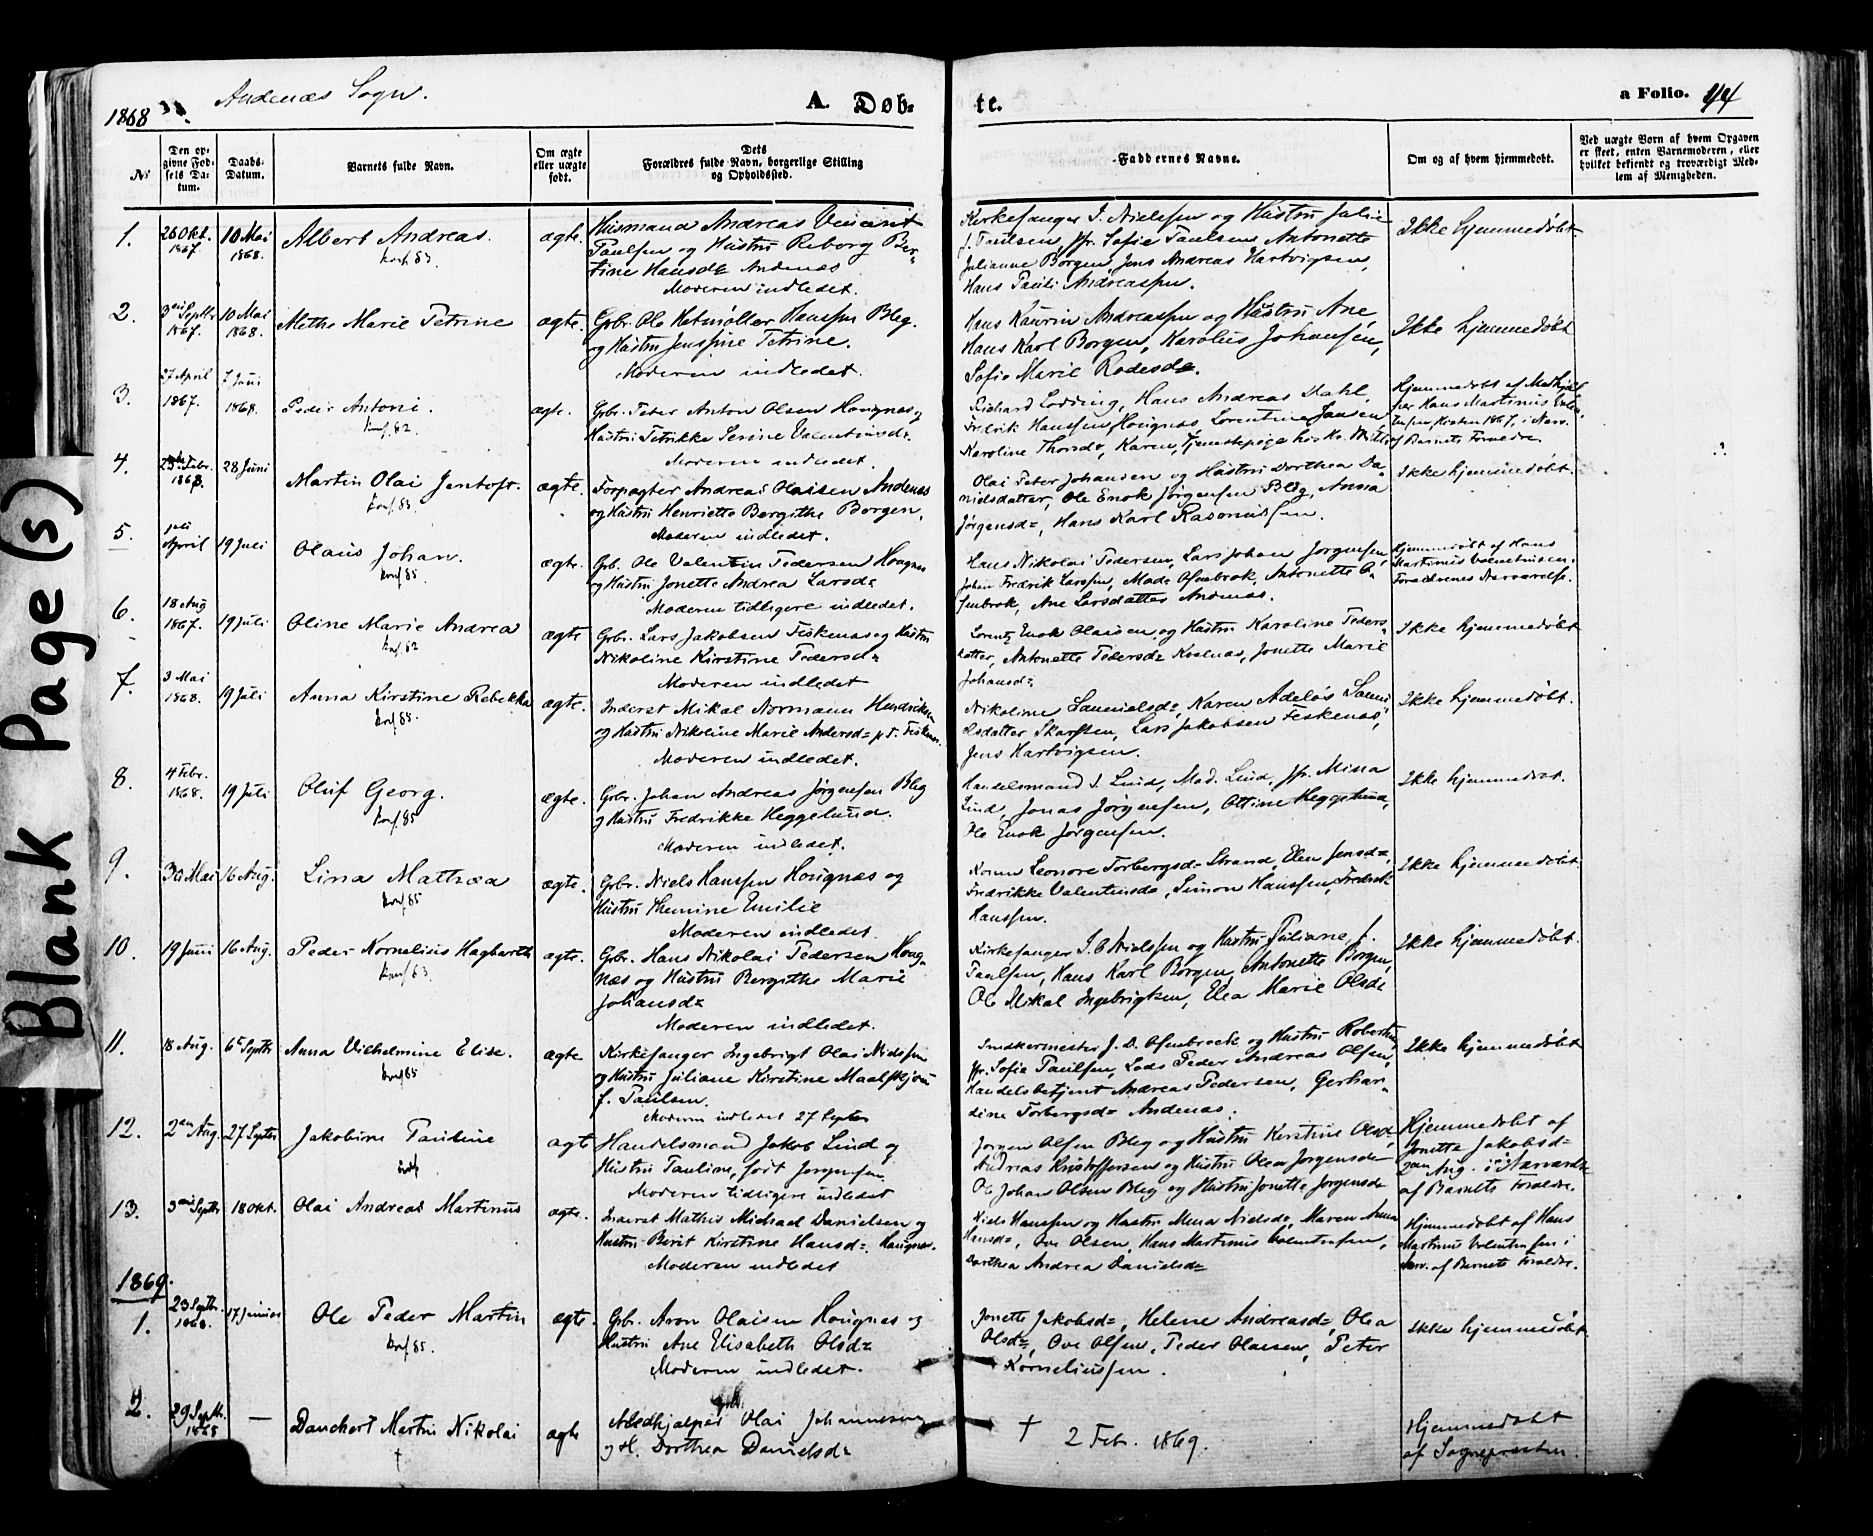 Blank Page(s)
1868
Andenæs Sogn.
A. Døb-
te.
a Folio. 44
No
Den opgivne Fødsels Datum.
Daabs-Datum.
Barnets fulde Navn.
Om ægte eller uægte født.
Dets Forældres fulde Navn, borgerlige Stilling og Opholdssted.
Faddernes Navne.
Om og af hvem hjemmedøbt.
Ved uægte Børn af hvem Opgaven er skeet, enten Barnemoderen, eller hvilket bekjendt og troværdigt Medlem af Menigheden.
1. 26 Okt. 1867. 10 Mai 1868. Albert Andreas. konf. 83. ægte.
Husmand Andreas
Paulsen og Hustru Reborg Ber-
tine Hansd= Andenæs
Moderen indledet.
Kirkesanger I. Nielsen og Hustru Julie
f. Paulsen, jfr. Sofie Paulsen, Antonette
Julianne Borgen, Jens Andreas Hartvigsen,
Hans Pauli Andreassen.
Ikke hjemmedøbt.
2. 3die Septbr 1867. 10 Mai 1868. Methe Marie Petrine ægte.
Gbr. Ole Hanssen Bleg.
og Hustru Jenssine Petrine.
Moderen indledet.
Hans Kaurin Andreassen og Hustru Ane,
Hans Karl Borgen, Karolus Johansen,
Sofie Marie Rodesd=.
Ikke hjemmedøbt
3. 27 April 1867. 7 Juni 1868. Peder Antoni. konf. 82 ægte.
Gbr. Peter Anton Olsen Hougnæs og
Hustru Petrikke Serine Valentinsd=
Moderen indledet.
Richard Lodding, Hans Andreas Dahl,
Fredrik Hanssen Hougnæs, Lorentine Jansen,
Karoline Thorsd=, Karen, Tjenestepige hos
Hjemmedøbt af
Hans Martinus Valen-
tinsen, Høsten 1867, i Nærv.
af Barnets Forældre.
4. Febr. 1868. 28 Juni Martin Olai Jentoft. konf. 83. ægte.
Forpagter Andreas Olaisen Andenæs
og Hustru Henriette Bergithe Borgen.
Moderen indledet.
Olai Peter Johansen og Hustru Dorthea Da-
nielsdatter, Ole Enok Jørgensen Bleg, Anna
Jørgensd=, Hans Karl Rasmussen.
Ikke hjemmedøbt.
5. 1ste April 19 Juli Olaus Johan. konf. 85. ægte.
Gbr. Ole Valentin Pedersen Hougnæs
og Hustru Jonette Andrea Larsd=
Moderen tidligere indledet.
Hans Nikolai Pedersen, Lars Johan Jørgensen,
Johan Fredrik Larssen, Mads Ofenbrok, Antonette O-
fenbrok, Ane Larsdatter Andenæs.
Hjemmedøbt af Hans
Martinus Valentinsen
Forældrenes Nærværelse.
6. 18 Aug 1867. 19 Juli Oline Marie Andrea konf. 82 ægte
Gbr. Lars Jakobsen Fiskenæs og Hustru
Nikoline Kirstine Pedersd=
Moderen indledet
Lorentz Enok Olaisen og Hustru Karoline Peders-
datter, Antonette Pedersd= Kvalnæs, Jonette Marie
Johansd=
Ikke hjemmedøbt
7. 3 Mai 1868. 19 Juli Anna Kirstine Rebekka konf. 85. ægte.
Inderst Mikal Normann Hendriksen
og Hustru Nikoline Marie Andersd= p.t. Fiskenæs.
Moderen indledet.
Nikoline Samuelsd=, Karen Adeløs Samu-
elsdatter Skarsten, Lars Jakobsen Fiskenæs,
Jens Hartvigsen.
Ikke hjemmedøbt.
8. 4 Febr. 1868. 19 Juli Oluf Georg. konf. 85 ægte.
Gbr. Johan Andreas Jørgensen Bleg
og Hustru Fredrikke Heggelund.
Moderen indledet.
Handelsmand J. Lind, Mad. Lind, jfr. Mina
Lind, Jonas Jørgensen, Ottine Heggelund,
Ole Enok Jørgensen.
Ikke hjemmedøbt.
9. 30 Mai 16 Aug. Lina Mathea konf. 85 ægte.
Gbr. Niels Hanssen Hougnæs og
Hustru Themine Emilie
Moderen indledet.
Leonore Torbergsd= Strand, Elen Jensd=,
Fredrikke Valentinsd=, Simon Hanssen, Fredrik
Hanssen.
Ikke hjemmedøbt
10. 19 Juni 16 Aug. Peder Kornelius Hagbarth konf. 83. ægte.
Gbr. Hans Nikolai Pedersen Houg-
næs og Hustru Bergithe Marie
Johansd=
Moderen indledet.
Kirkesanger I. O Nielssen og Hustru Juliane f.
Paulsen, Hans Karl Borgen, Antonette Borgen,
Ole Mikal Ingebrigtsen, Elea Marie Olsd=
Ikke hjemmedøbt.
11. 18 Aug. 6te Septbr Anna Vilhelmine Elise. konf 85 ægte
Kirkesanger Ingebrigt Olai Nielsen
og Hustru Juliane Kirstine Maalfrid
f. Paulsen.
Moderen indledet 27 Septbr
Snedkermester J. D. Ofenbrock og Hustru Robertine,
jfr. Sofie Paulsen, Lods Peder Andreas Olsen,
Handelsbetjent Andreas Pedersen, Gerhar-
dine Torbergsd= Andenæs.
Ikke hjemmedøbt
12. 2den Aug. 27 Septbr Jakobine Pauline konf ægte
Handelsmand Jakob Lind og
Hustru Pauline, født Jørgensen
Moderen tidligere indledet
Jørgen Olsen Bleg og Hustru Kirstine Olsd=,
Andreas Kristoffersen og Hustru Olea Jørgensd=
Ole Johan Olsen Bleg og Hustru Jonette Jørgensd=
Hjemmedøbt af
Jonette Jakobsd=
2den Aug. i Nærværelse
af Barnets Forældre.
13. 3die Septbr 18 Okt. Olai Andreas Martinus ægte.
Inderst Mathis Michael Danielsen og
Hustru Berit Kirstine Hansd= Hougnæs.
Moderen indledet
Niels Hanssen og Hustru Mena Nielsd=, Maren Anna
Hansd=, Ove Olsen, Hans Martinus Valentinsen,
Dorthea Andrea Danielsd=
Hjemmedøbt af Hans
Martinus Valentinsen i
Nærv. af Barnets Forældre.
1869.
1. 23 Septbr. 1868. 17 Januar Ole Peder Martin konf 85. ægte.
Gbr. Aron Olaisen Hougnæs og
Hustru Ane Elisabeth Olsd=
Moderen indledet.
Jonette Jakobsd=, Helene Andreasd=, Olea
Olsd=, Ove Olsen, Peder Olaisen, Peter
Korneliussen.
Ikke hjemmedøbt
2. 29 Septbr. 1868 — Danchert Martin Nikolai † ægte
Medhjælper Olai Johannessen
og H. Dorthea Danielsd=
† 2 Feb. 1869.
Hjemmedøbt
af Sognepresten.